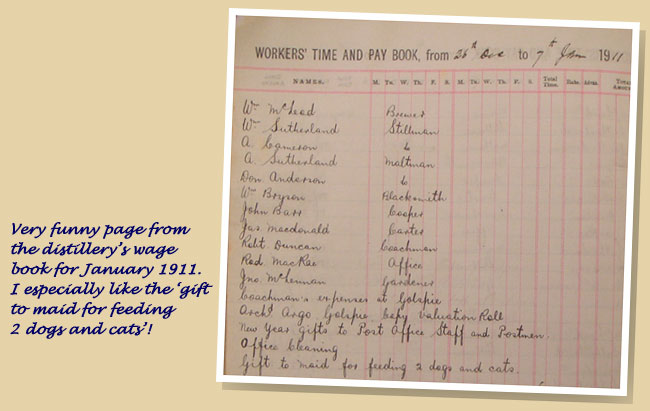 WORKERS' TIME AND PAY BOOK, from 26th Dec to 7th Jan 1911
NAMES. M. Tu. W. Th. F. S. M. Tu. W. Th. F. S. Total Time. Rate. Total
Wm McLeod Brewer
Wm Sutherland Stillman
A. Cameron "
A. Sutherland Maltman
Don Anderson "
Wm Bryson Blacksmith
John Barr Cooper
Jas Macdonald Carter
Robt. Duncan Coachman
Rod MacRae Office
Jno. McLennan Gardener
Coachman's expenses at Golspie
Archd Argo Golspie Copy Valuation Roll
New Year gifts to Post Office Staff and Postmen.
Office Cleaning
Gift to maid for feeding 2 dogs and cats.
Very funny page from
the distillery's wage
book for January 1911.
I especially like the 'gift
to maid for feeding
2 dogs and cats'!